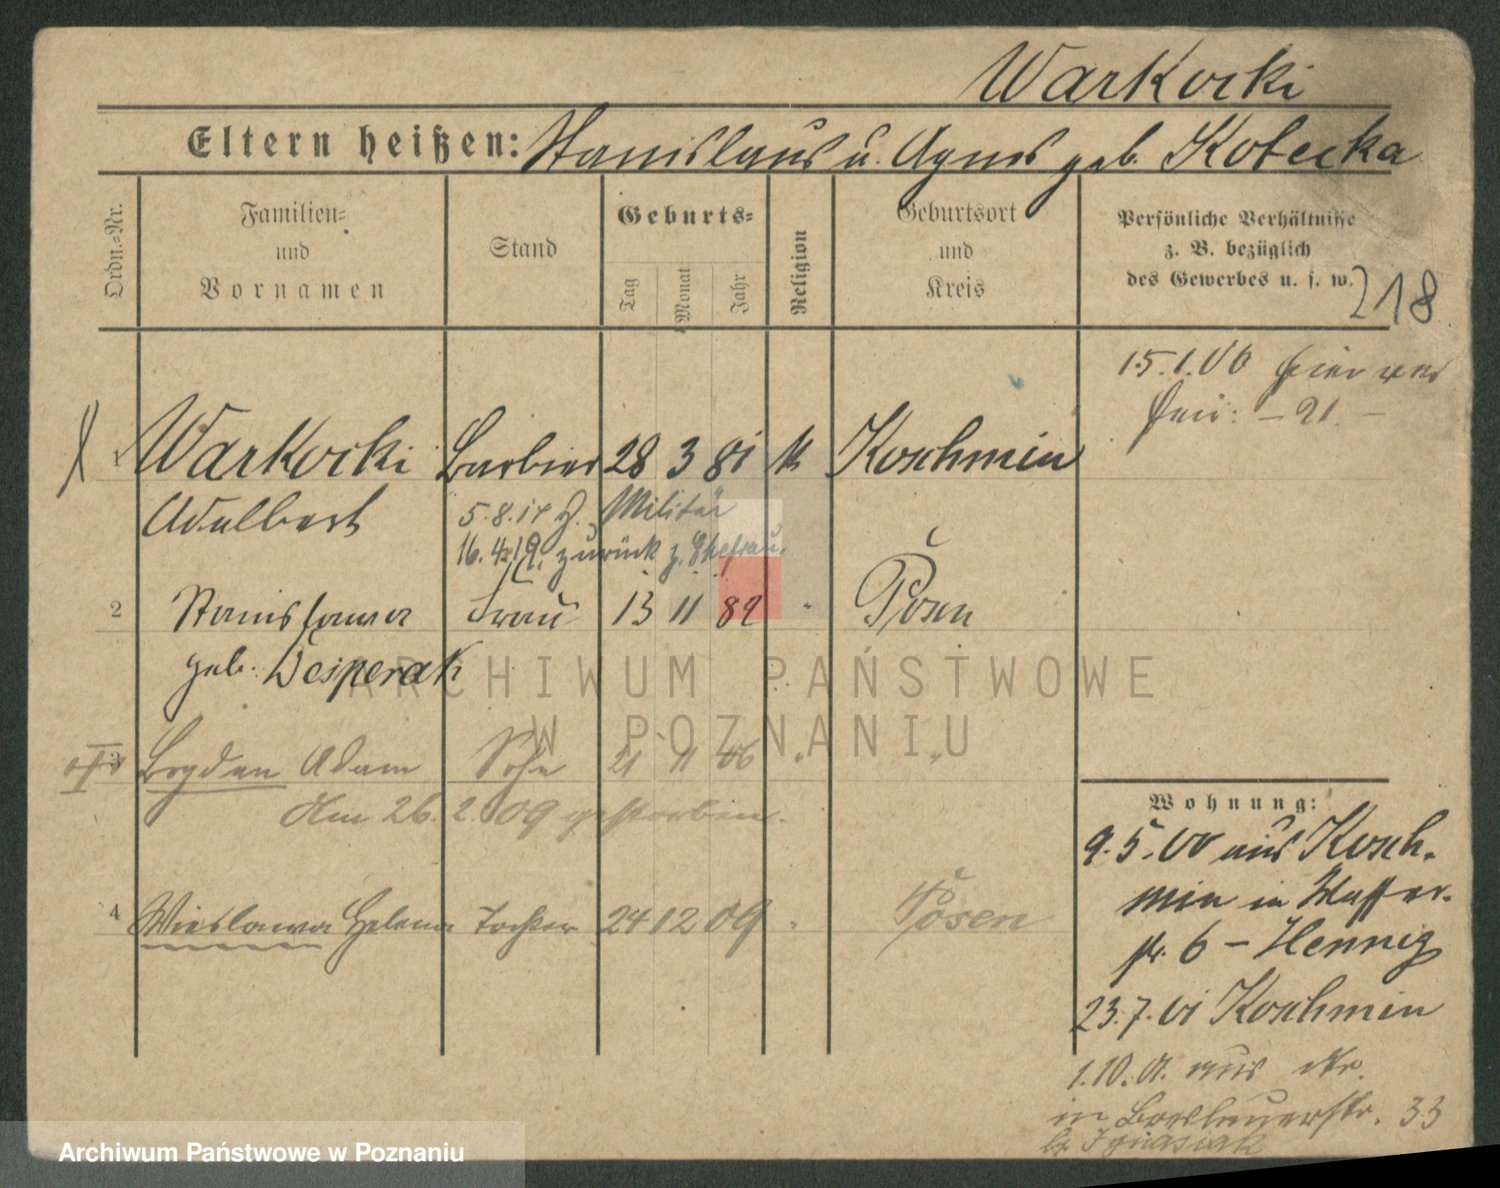 Warkocki
Eltern heißen: Stanislaus u. Agnes geb. Kotecka
Ordn.-Nr.
Familien- und Vornamen
Stand
Geburts-
Tag
Monat
Jahr
Religion
Geburtsort und Kreis
Persönliche Verhältnisse
z. B. bezüglich
des Gewerbes u. s. w.
218
15.1.06 hier
21.
1 Warkocki Barbier 28 3 81 k Koschmin
Adalbert
5.8.14 z. Militär
16.4.19. zurück z. Ehefrau.
2 Stanislawa Frau 13 11 82 " Posen
geb. Desperak
3 Bogdan Adam Sohn 21 11 06 " "
Am 26.2.09 gestorben.
4 Wieslawa Helena Tochter 24 12 09 " Posen
Wohnung:
9.5.00 aus Kosch-
min in Wasser-
str. 6 – Hennig
23.7.01 Koschmin
1.10.01. aus
in Breslauerstr. 33
b. Ignasiak
ARCHIWUM PAŃSTWOWE
W POZNANIU
Archiwum Państwowe w Poznaniu